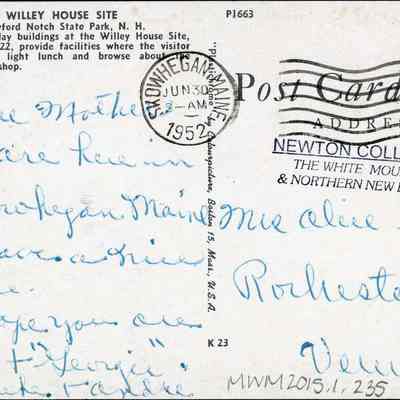 WILLEY HOUSE SITE
wford Notch State Park, N. H.
day buildings at the Willey House Site,
22, provide facilities where the visitor
light lunch and browse about the
shop.
P1663
SKOWHEGAN, MAINE
JUN 30
-AM
1952
Post Card
ADDRE
NEWTON COLL
THE WHITE MOU
& NORTHERN NEW E
"Plastichrome" by Colourpicture, Boston 15, Mass., U.S.A.
K 23
Mother
are here in
owhegan Maine
ave a nice
ope you are
+ "Georgie"
+ Andre
Mrs Alice
Rocheste
Verm
MWM2015.1.235